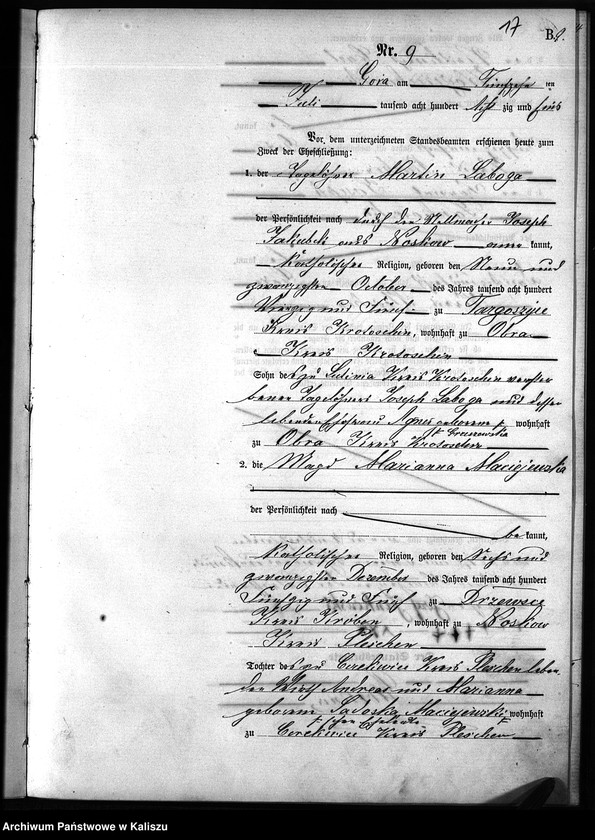 17
B.
Nr. 9
Gora am Fünfzehn ten
Juli tausend acht hundert Acht zig und fünf
Vor dem unterzeichneten Standesbeamten erschienen heute zum
Zweck der Eheschließung:
1. der Tagelöhner Martin Laboga
der Persönlichkeit nach durch den Stellmacher Joseph
Jakubek aus Noskow aner kannt,
katholischer Religion, geboren den Neun und
zwanzigsten October des Jahres tausend acht hundert
Vierzig und Fünf zu Targoszyce
Kreis Krotoschin, wohnhaft zu Obra
Kreis Krotoschin
Sohn des zu Kreis Krotoschin verstor
benen Tagelöhners Joseph Laboga und dessen
lebenden Ehefrau Agnes geborene wohnhaft
zu Obra Kreis Krotoschin
2. die Magd Marianna Maciejewska
der Persönlichkeit nach
be kannt,
katholischer Religion, geboren den Sechs und
zwanzigsten Dezember des Jahres tausend acht hundert
Fünfzig und Fünf zu Drzewce
Kreis Kröben, wohnhaft zu Noskow
Kreis Pleschen
Tochter des zu Cerekwice Kreis Pleschen leben
den Wirth Andreas und Marianna
geborene Maciejewski wohnhaft
zu Cerekwice Kreis Pleschen
Archiwum Państwowe w Kaliszu